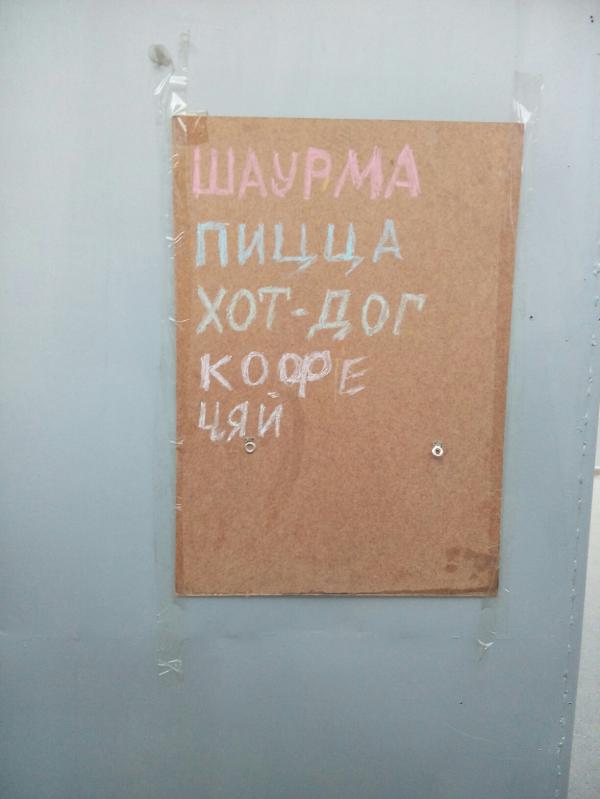 ШАУРМА
ПИЦЦА
ХОТ-ДОГ
КОФЕ
ЦЯЙ